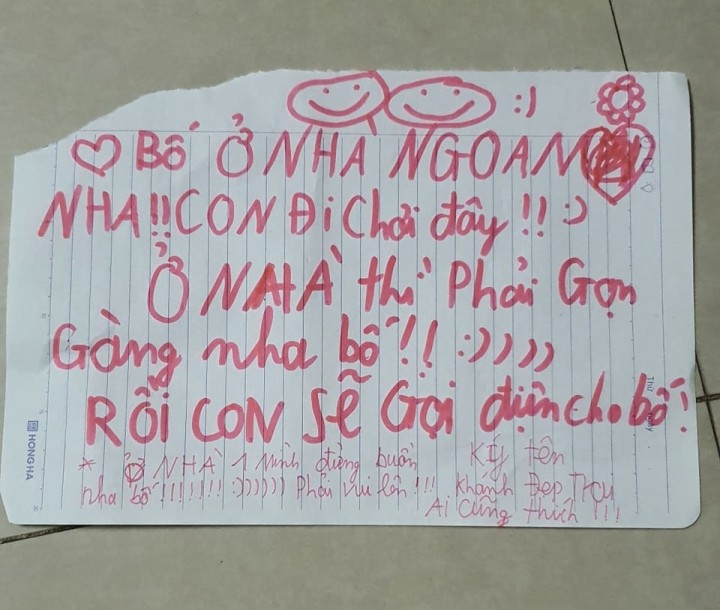 :)
BỐ Ở NHA NGOAN
NHA!! CON Đi Chơi đây !! :)
Ở NHÀ thì Phải Gọn
Gàng nha bố !! :))))
RỒi CON Sẽ Gọi điện cho bố!
* Ở NHÀ 1 Mình đừng buồn
nha bố !!!!!!! :)))))) Phải vui lên !!!
Ký tên
Khanh Đẹp Trai
Ai Cũng thích !!!
HONG HA